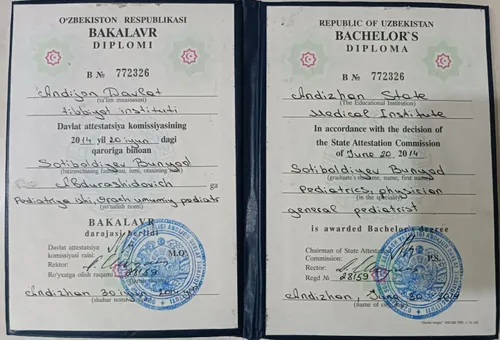 O'ZBEKISTON RESPUBLIKASI
BAKALAVR
DIPLOMI
B № 772326
Andijon Davlat
(ta'lim muassasasi)
tibbiyot instituti
Davlat attestatsiya komissiyasining
2014 yil 20 iyun dagi
qaroriga binoan
Sotiboldiyev Bunyod
Abdurashidovich ga
Pediatriya ishi,
BAKALAVR
darajasi berildi
Davlat attestatsiya
komissiyasi raisi:
Rektor:
M.O'.
Ro'yxatga olish raqami 28159
Andizhan 30
REPUBLIC OF UZBEKISTAN
BACHELOR`S
DIPLOMA
B № 772326
Andizhan State
(The Educational Institution)
Medical Institute
In accordance with the decision of
the State Attestation Commission
of June 20, 2014
Sotiboldiyev Bunyod
(graduate's surname, name, first name)
pediatrics, physician
(in the specialty)
general pediatrist
is awarded Bachelor's degree
Chairman of State Attestation
Commission:
P.S.
Rector:
Regd № 28159
Andizhan,